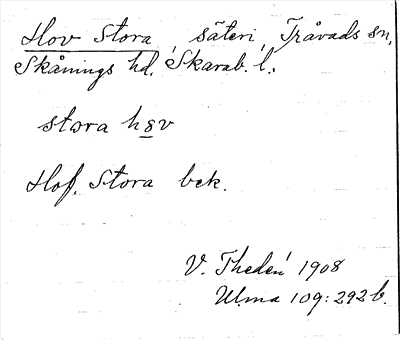 Hov Stora, säteri, Tråvads sn,
Skånings hd. Skarab. l.:
stora hsv
Hof, Stora bek.
V. Thedén 1908
Ulma 109:292 b.